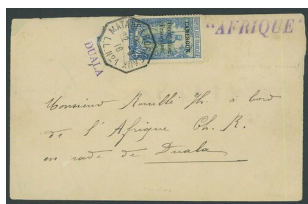 "AFRIQUE"
DUALA
Monsieur Rouillé Th. à bord
de l'Afrique Ch. R.
en rade de Duala